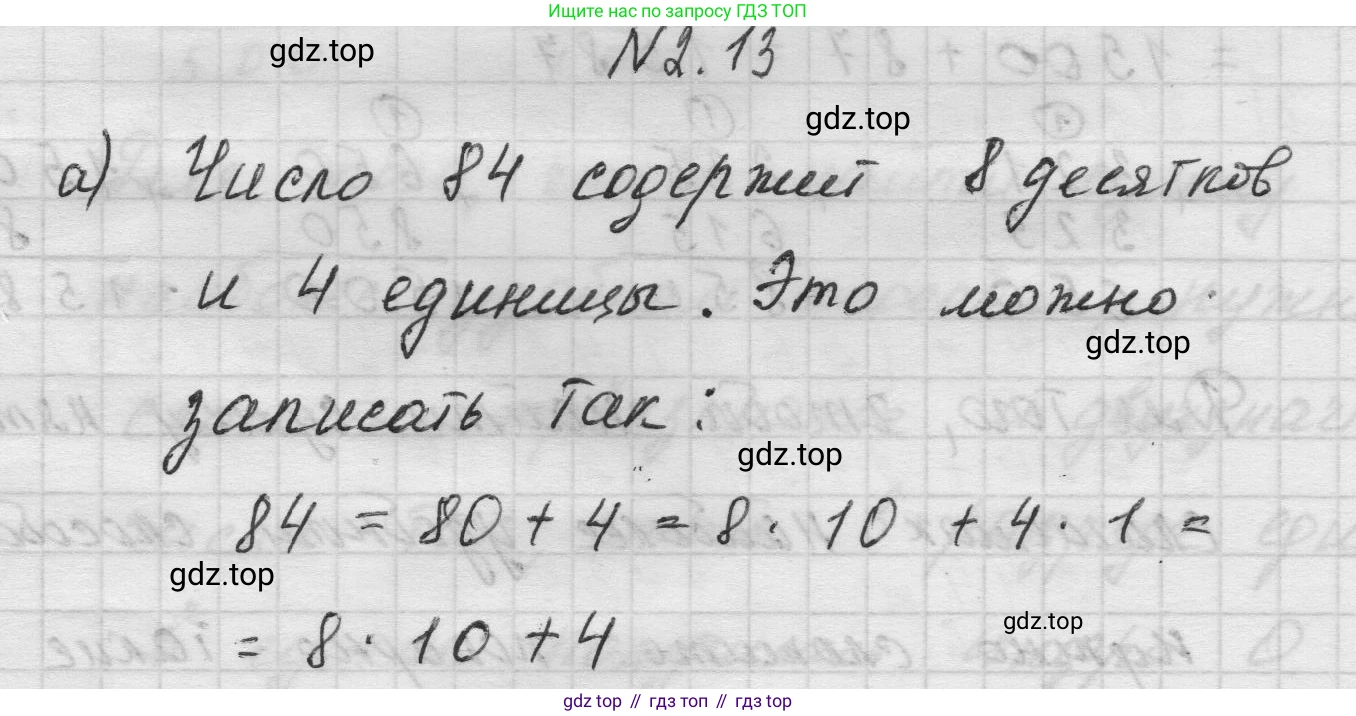 Ищите нас по запросу ГДЗ ТОП
gdz.top
N2.13
gdz.top
а) Число 84 содержит 8 десятков
и 4 единицы. Это можно
gdz.top
записать так:
gdz.top
84 = 80 + 4 = 8 · 10 + 4 · 1 =
gdz.top
gdz.top
= 8 · 10 + 4
gdz top // гдз топ // гдз top